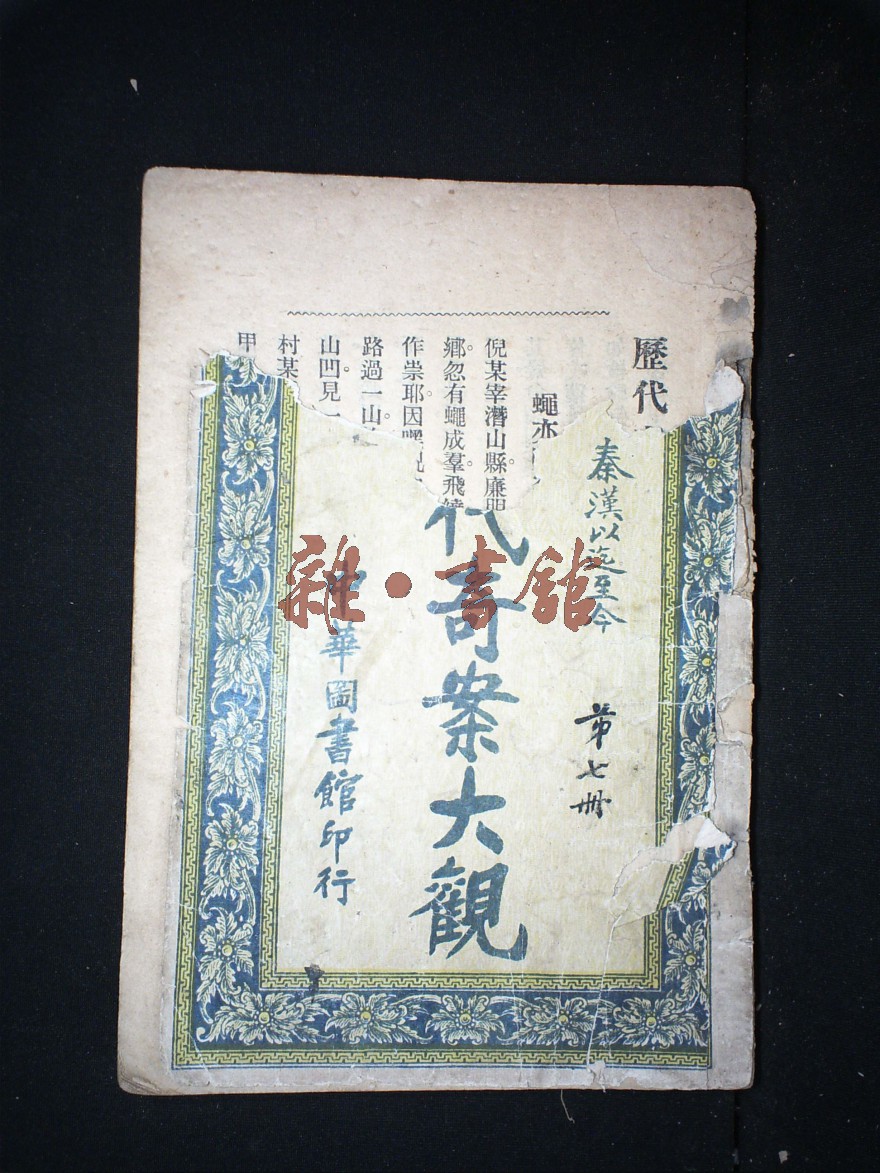 歷代
蠅亦
倪某宰潛山縣廉明
鄉忽有蠅成羣飛繞
作祟耶因嘿祝
路過一山
山凹見一
村某
甲
秦漢以迄至今
第七冊
代奇案大觀
中華圖書館印行
雜·書館